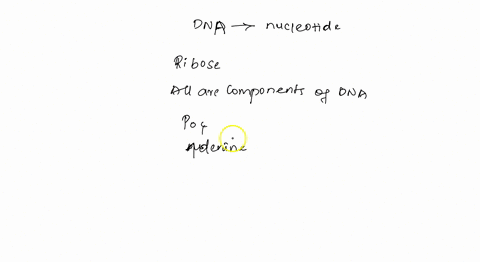 DNA → nucleotide
Ribose
All are components of DNA
PO4
Adenine